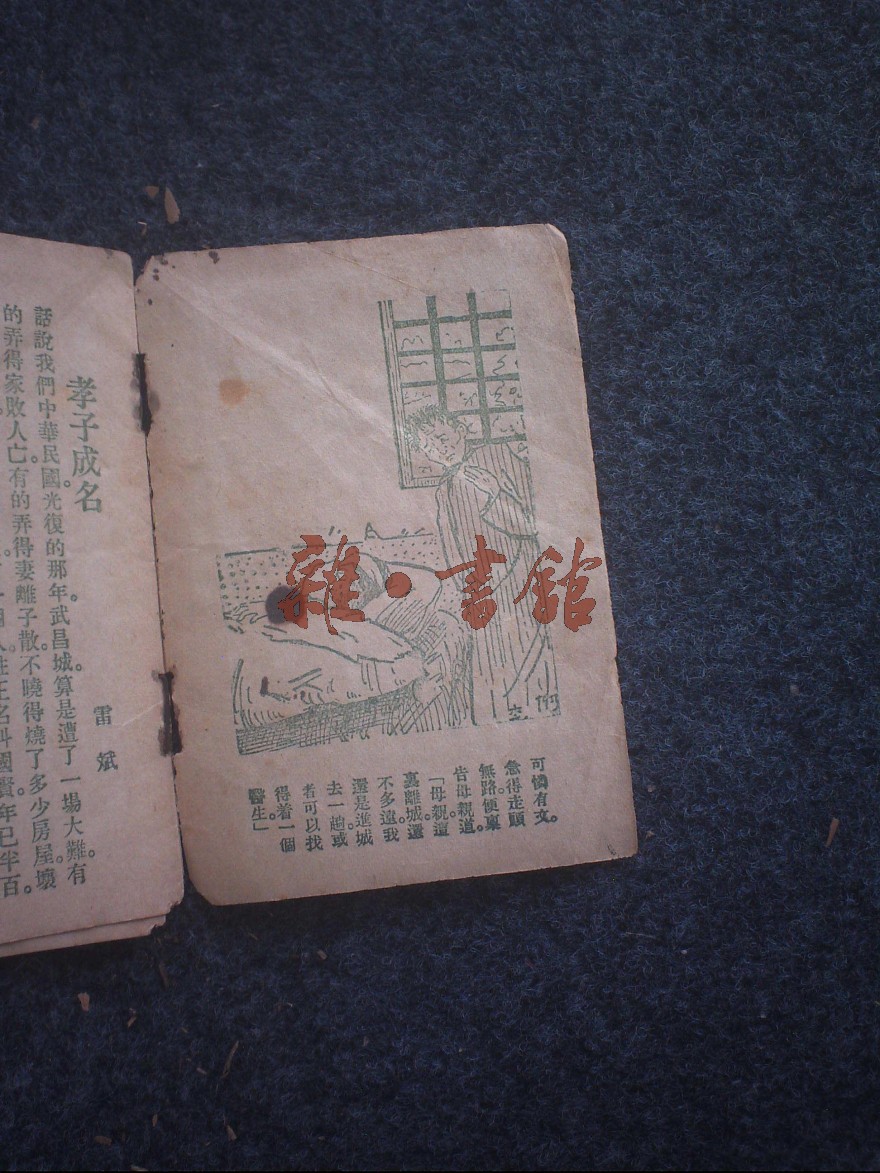 可憐有文。
急得走頭
無路。便稟
告母親道。
「母親這
裏離城還
不多遠。我
還是進城
去一趟。或
者可以找
得着一個
醫生。」
孝子成名
雷斌
話說我們中華民國光復的那年。武昌城算是遭了一場大難。有
的弄得家敗人亡。有的弄得妻離子散。不曉得燒了多少房屋。壞
國賢。年已半百。
雜·書館